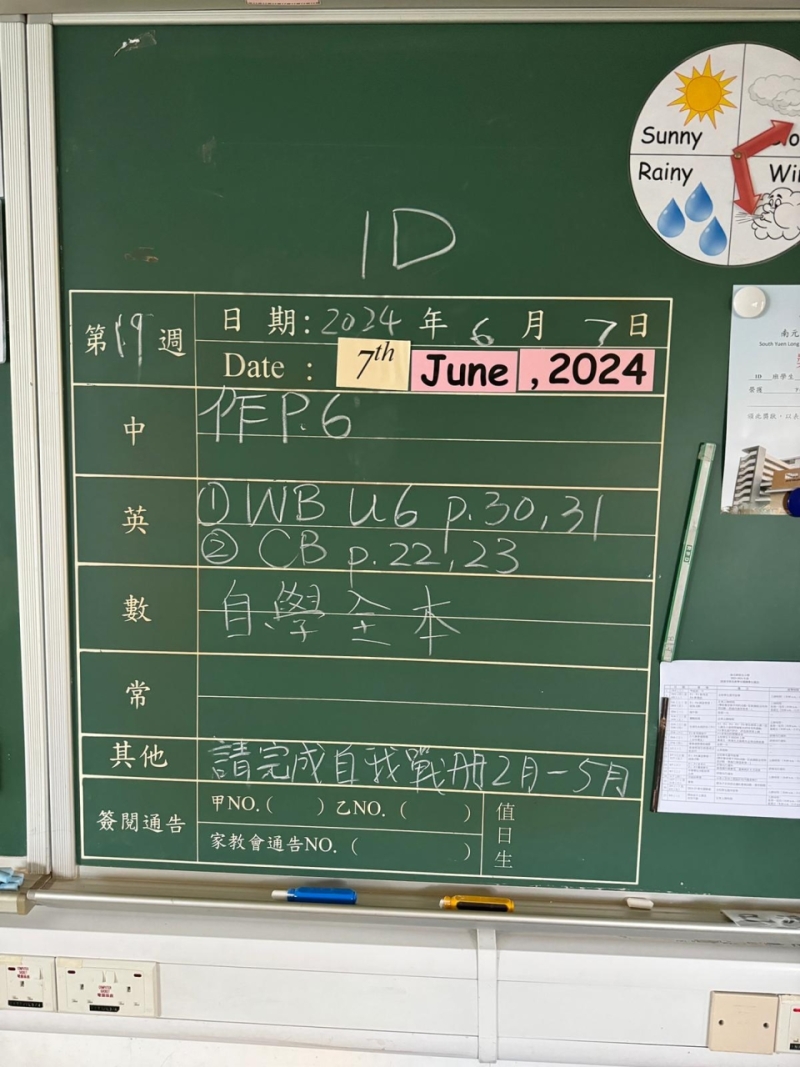 Sunny
Rainy
1D
第19週
日 期: 2024 年 6 月 7 日
Date : 7th June , 2024
中
作 P.6
英
① WB U6 p.30, 31
② CB p.22, 23
數
自學全本
常
其他
請完成自我戰冊2月-5月
簽閱通告
甲NO.( ) 乙NO. ( )
家教會通告NO. ( )
值日生
南元
South Yuen Long
1D 班學生